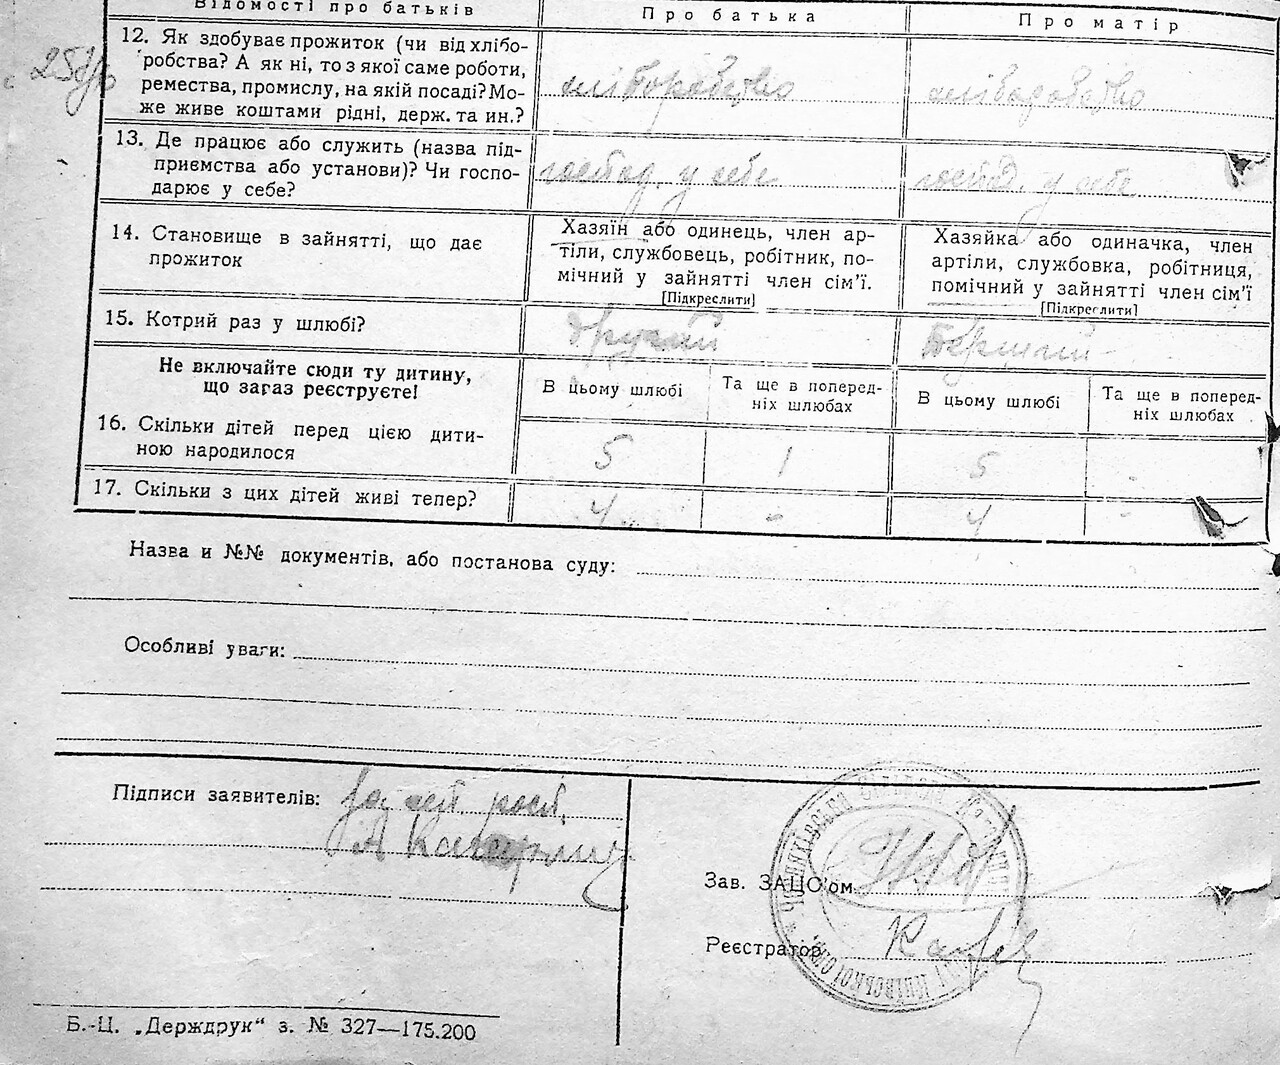 Відомості про батьків
Про батька
Про матір
12. Як здобуває прожиток (чи від хлібо-
робства? А як ні, то з якої саме роботи,
ремества, промислу, на якій посаді? Мо-
же живе коштами рідні, держ. та ин.?
хліборобство
хліборобство
13. Де працює або служить (назва під-
приємства або установи)? Чи госпо-
дарює у себе?
господ. у себе
господ. у себе
14. Становище в зайнятті, що дає
прожиток
Хазяїн або одинець, член ар-
тіли, службовець, робітник, по-
мічний у зайнятті член сім'ї.
[Підкреслити]
Хазяйка або одиначка, член
артіли, службовка, робітниця,
помічний у зайнятті член сім'ї
[Підкреслити]
15. Котрий раз у шлюбі?
другий
Перший
Не включайте сюди ту дитину,
що зараз реєструєте!
В цьому шлюбі
Та ще в поперед-
ніх шлюбах
В цьому шлюбі
Та ще в поперед-
ніх шлюбах
16. Скільки дітей перед цією дити-
ною народилося
5
1
5
-
17. Скільки з цих дітей живі тепер?
4
-
4
-
Назва и №№ документів, або постанова суду:
Особливі уваги:
Підписи заявителів:
Зав. ЗАЦС'ом
Реєстратор
Б.-Ц. „Держдрук“ з. № 327—175.200